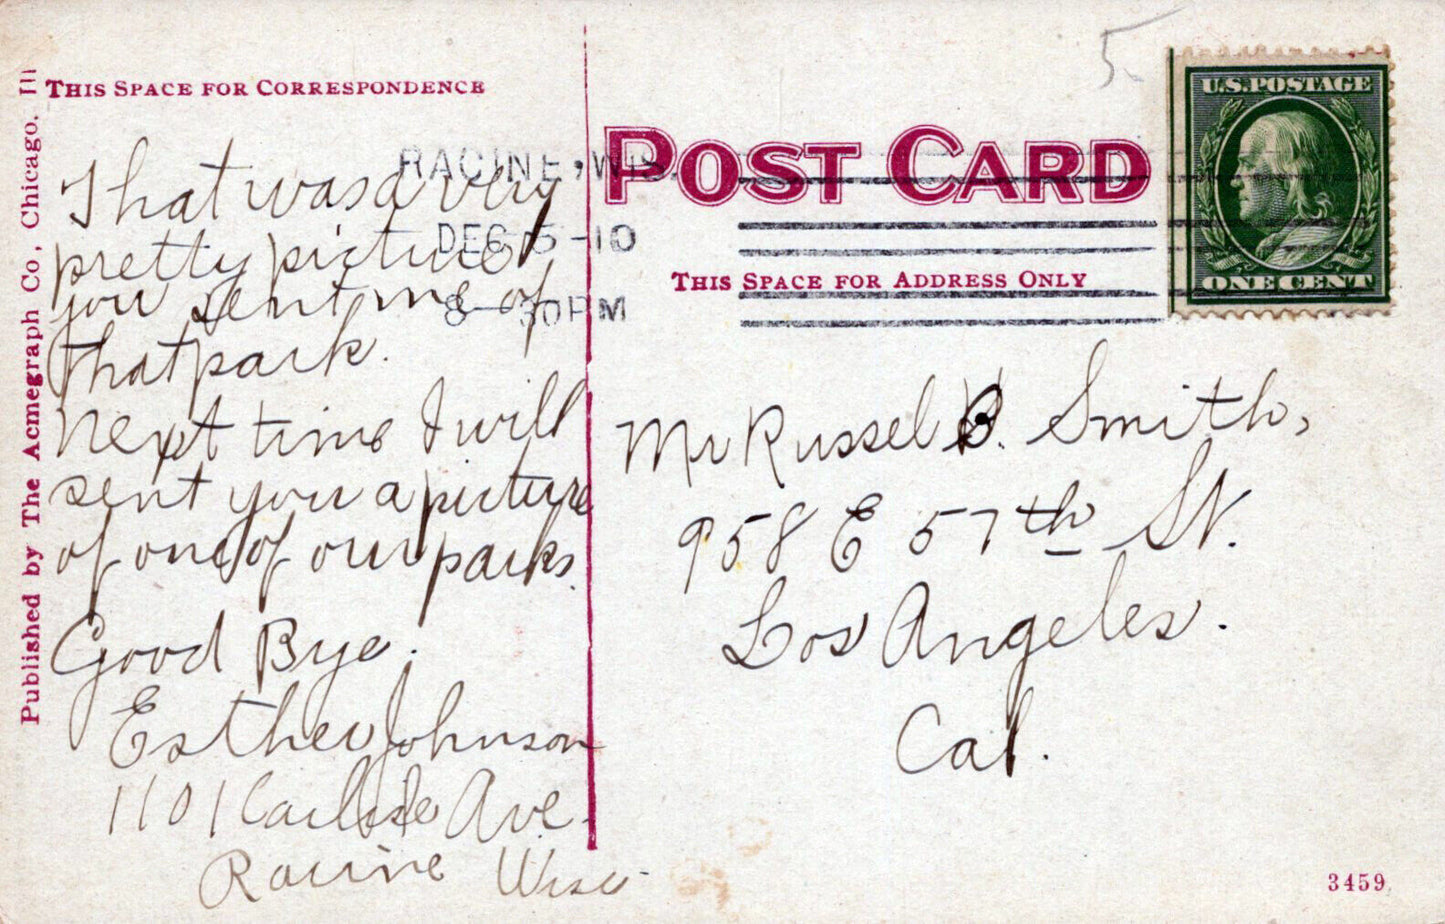 THIS SPACE FOR CORRESPONDENCE
Published by The Acmegraph Co, Chicago, Ill
RACINE, WIS.
DEC 5-10
8-30PM
POST CARD
THIS SPACE FOR ADDRESS ONLY
U.S.POSTAGE
ONE CENT
5
That was a very
pretty picture
you sent me of
that park.
Next time I will
sent you a picture
of one of our parks.
Good Bye.
Esther Johnson
1101 Carlisle Ave.
Racine Wisc
Mr Russel B. Smith,
958 E 57th St.
Los Angeles.
Cal.
3459